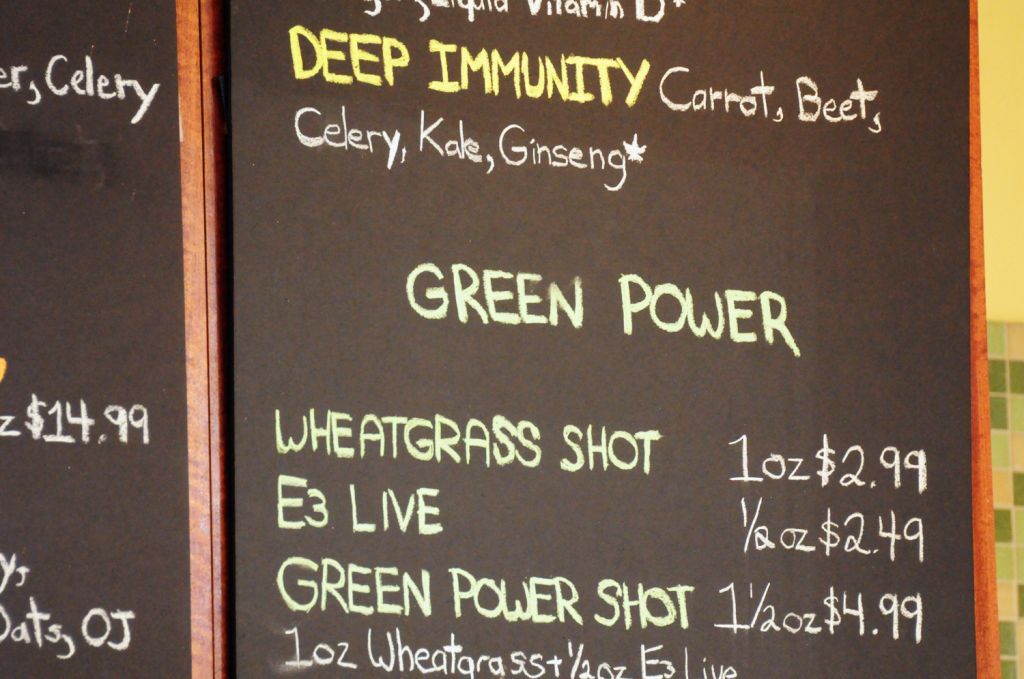 Liquid Vitamin D*
DEEP IMMUNITY Carrot, Beet,
Celery, Kale, Ginseng*
GREEN POWER
WHEATGRASS SHOT 1oz $2.99
E3 LIVE 1/2oz $2.49
GREEN POWER SHOT 1 1/2oz $4.99
1oz Wheatgrass + 1/2oz E3 Live
Celery
$14.99
Oats, OJ